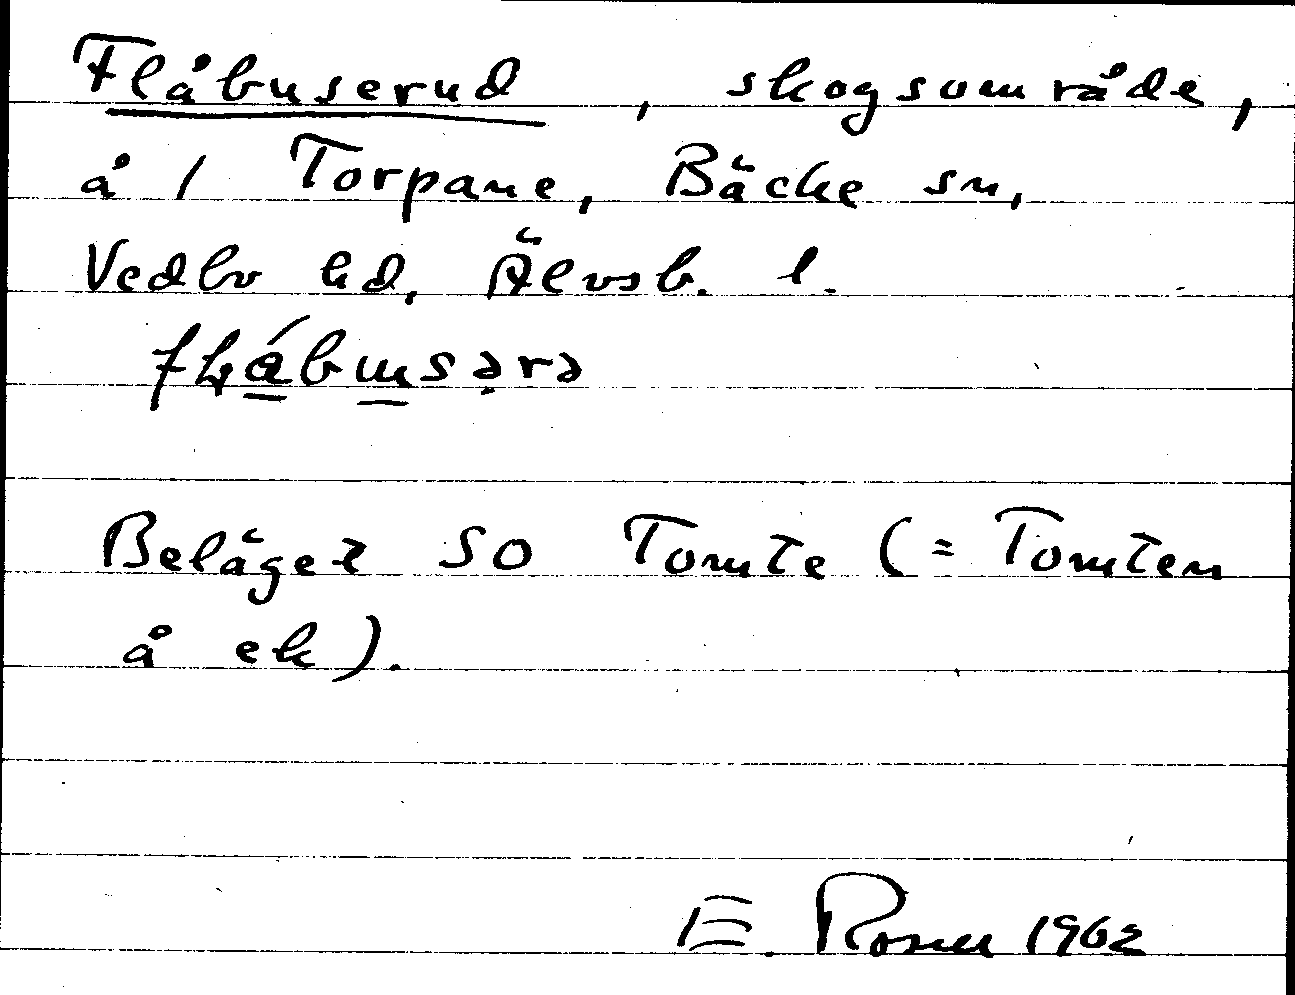 Flåbuserud, skogsområde,
å 1 Torpane, Bäcke sn,
Vedbo hd, Älvsb. l.
Beläget SO Tomte (= Tomten
å ek).
E. Rosell 1962